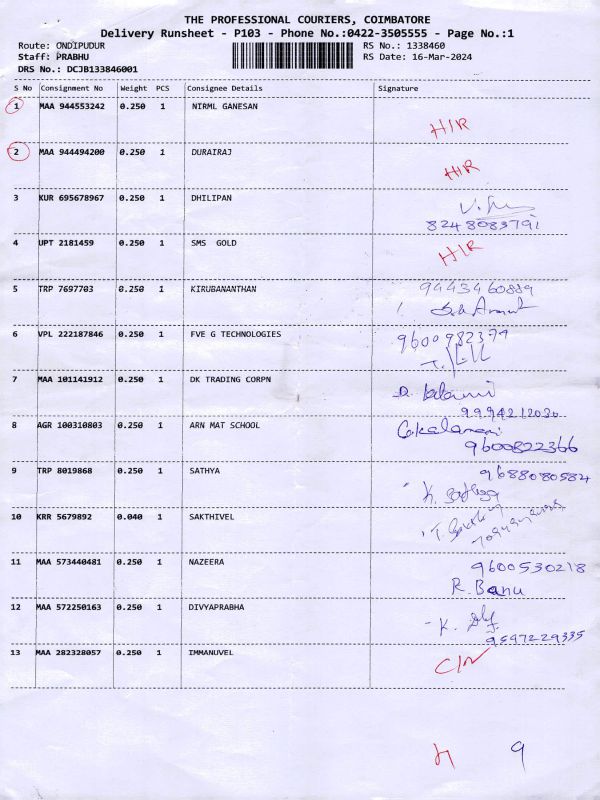 THE PROFESSIONAL COURIERS, COIMBATORE
Delivery Runsheet - P103 - Phone No.:0422-3505555 - Page No.:1
Route: ONDIPUDUR RS No.: 1338460
Staff: PRABHU RS Date: 16-Mar-2024
DRS No.: DCJB133846001
S No Consignment No Weight PCS Consignee Details Signature
1 MAA 944553242 0.250 1 NIRML GANESAN
H/R
2 MAA 944494200 0.250 1 DURAIRAJ
H/R
3 KUR 695678967 0.250 1 DHILIPAN
8248083791
4 UPT 2181459 0.250 1 SMS GOLD
H/R
5 TRP 7697703 0.250 1 KIRUBANANTHAN
9443460889
6 VPL 222187846 0.250 1 FVE G TECHNOLOGIES
9600982379
7 MAA 101141912 0.250 1 DK TRADING CORPN
9994212036
8 AGR 100310803 0.250 1 ARN MAT SCHOOL
9600822366
9 TRP 8019868 0.250 1 SATHYA
9688080584
K. Sathya
10 KRR 5679892 0.040 1 SAKTHIVEL
11 MAA 573440481 0.250 1 NAZEERA
9600530218
R. Banu
12 MAA 572250163 0.250 1 DIVYAPRABHA
K.
9597229335
13 MAA 282328057 0.250 1 IMMANUVEL
9